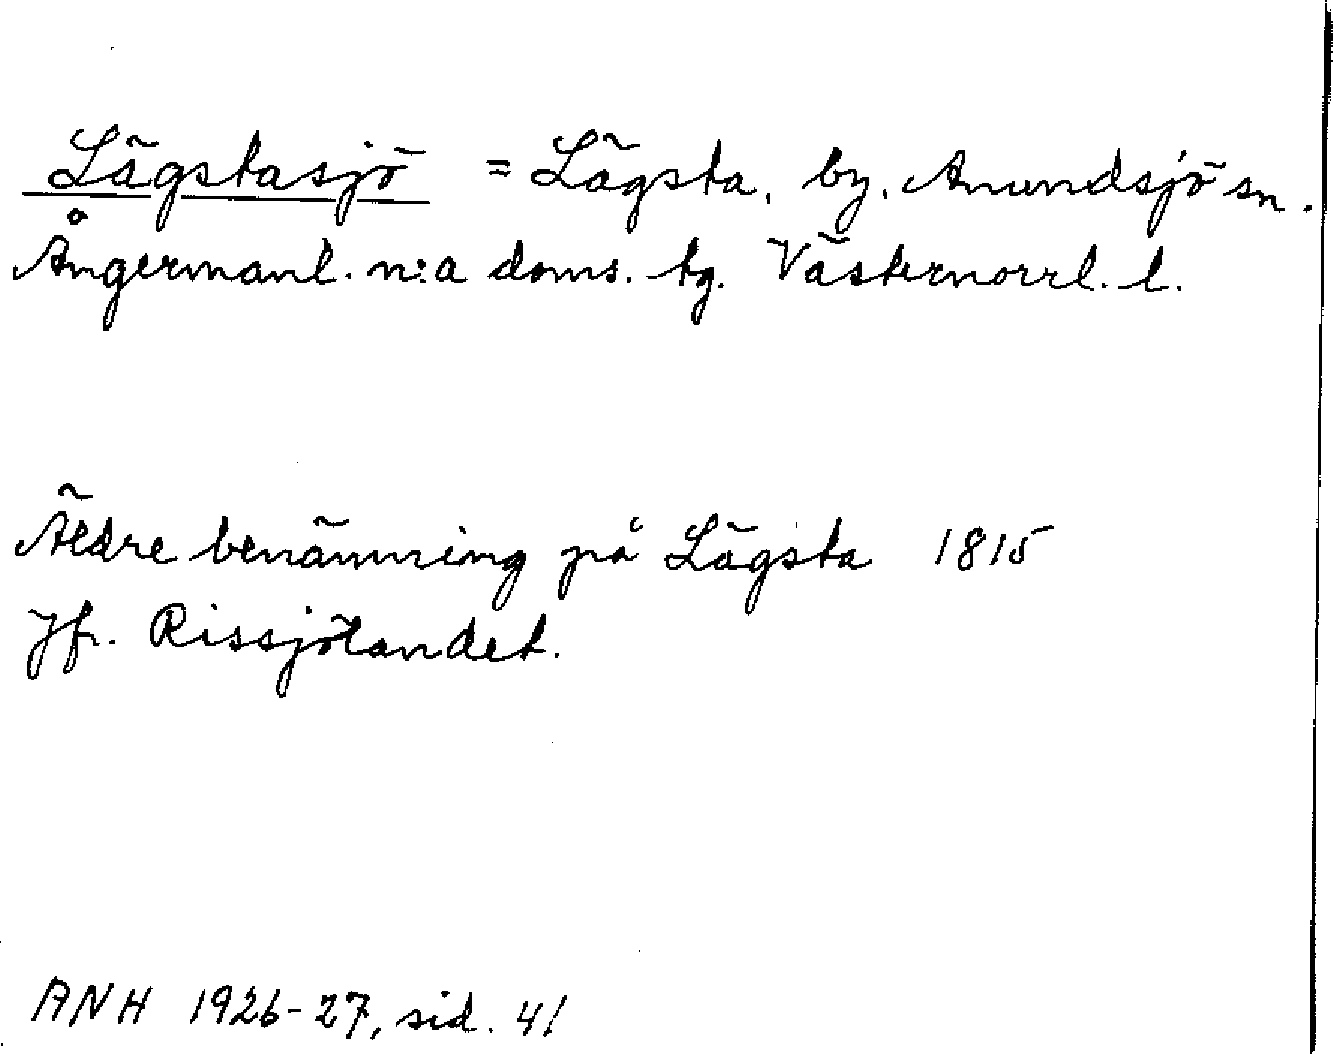 Lägstasjö = Lägsta, by, Anundsjö sn.
Ångermanl. n:a doms. tg. Västernorrl. l.
Äldre benämning på Lägsta 1815
Jfr. Rissjölandet.
ANH 1926-27, sid. 41